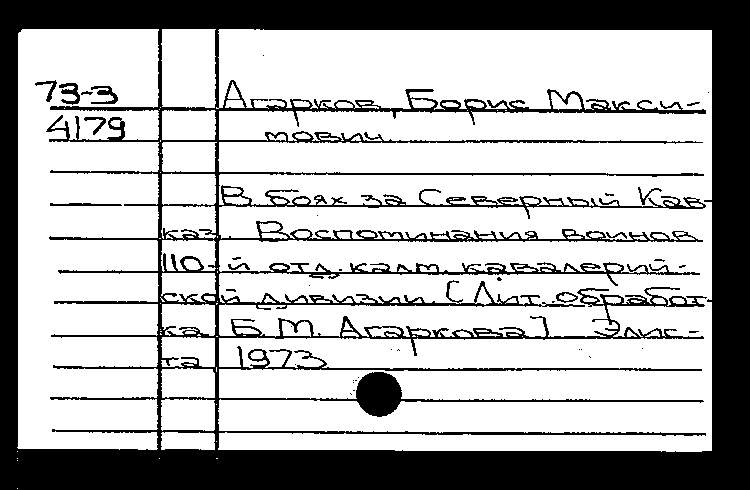 73-3
Агарков, Борис Макси-
4179
мович.
В боях за Северный Кав-
каз. Воспоминания воинов
110-й отд. калм. кавалерий-
ской дивизии. [Лит. обработ-
ка Б.М. Агаркова]. Элис-
та, 1973